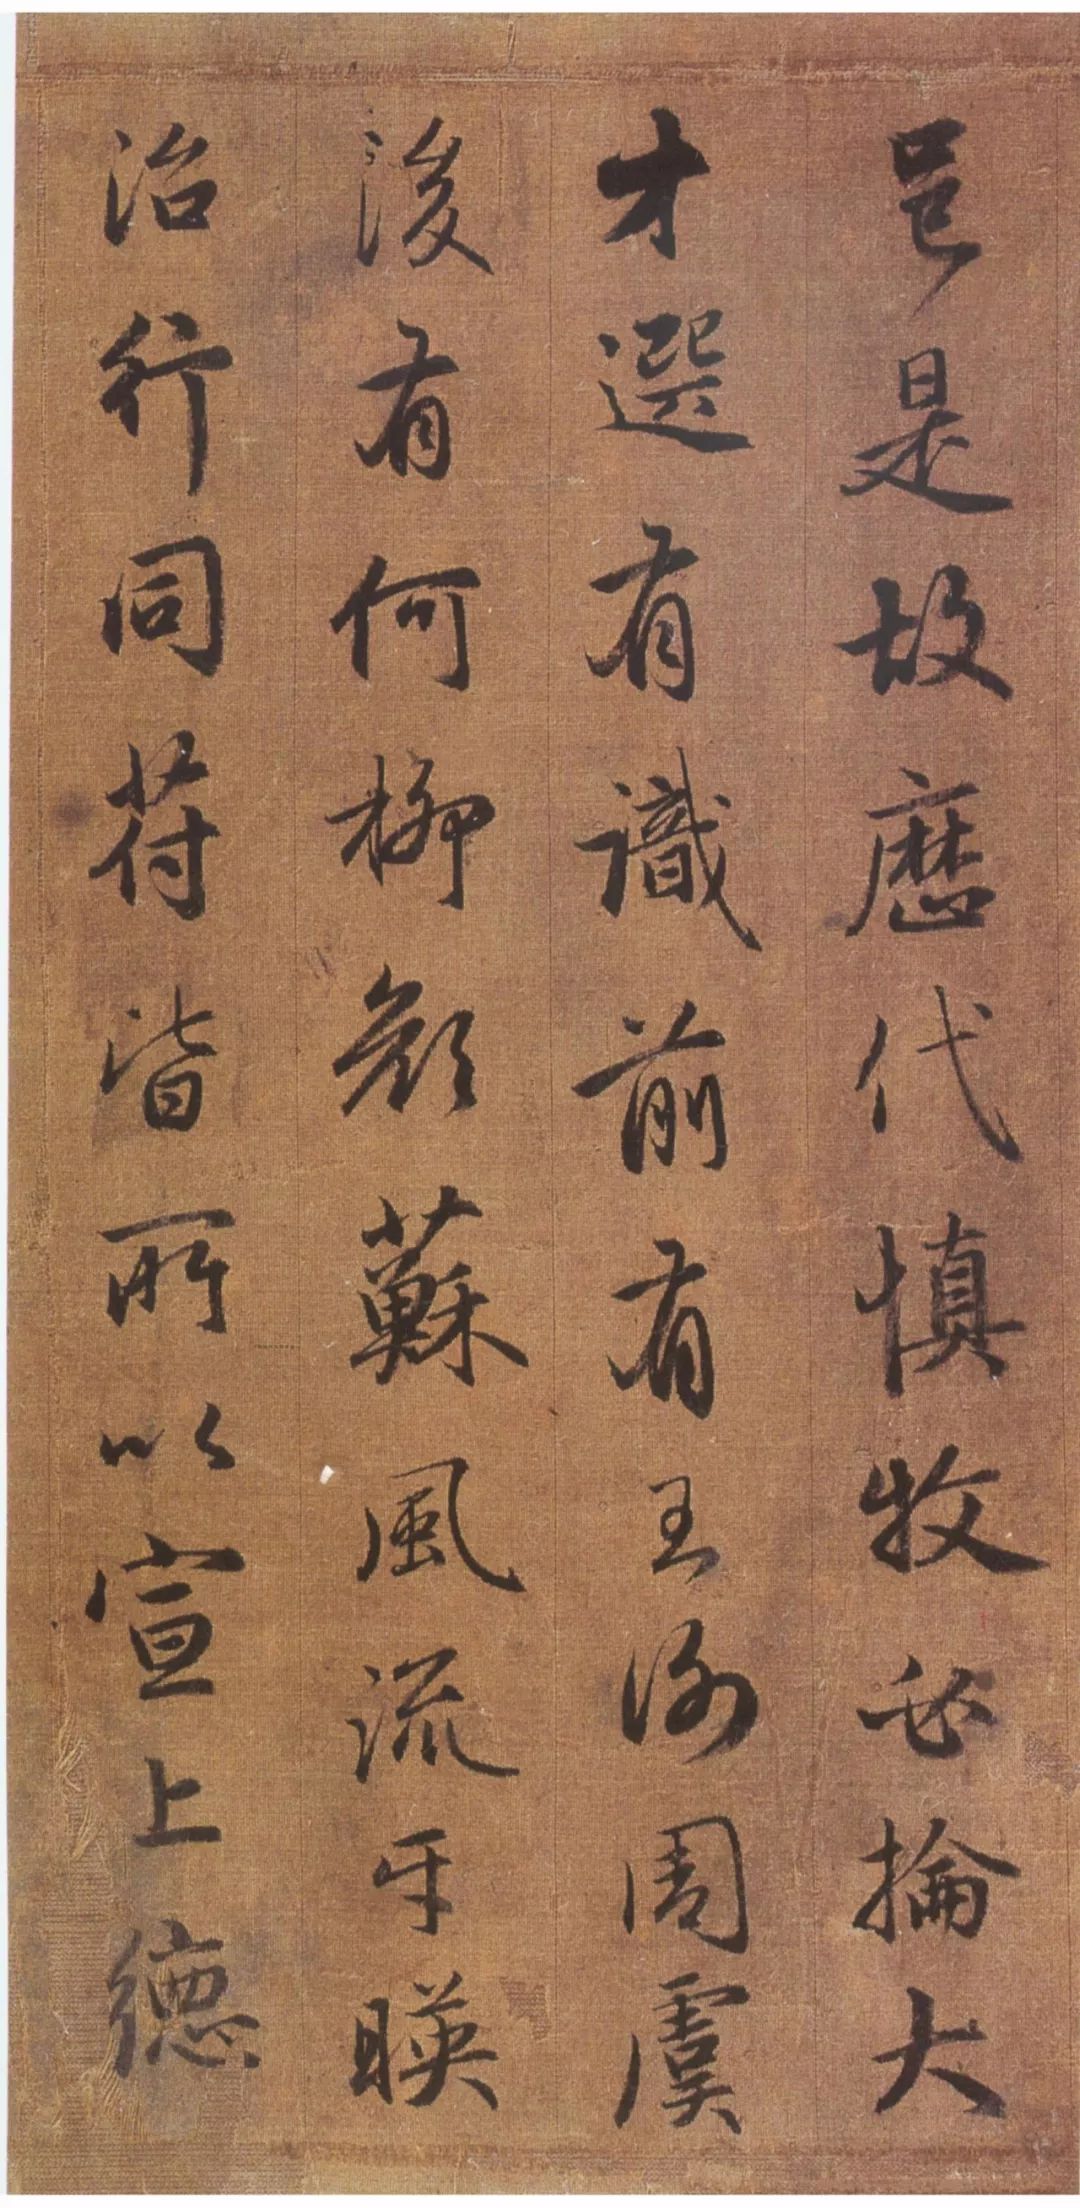 邑是故歷代慎牧必掄大
才選有識前有王謝周虞
後有何柳顏蘇風流互暎
治行同符皆所以宣上德